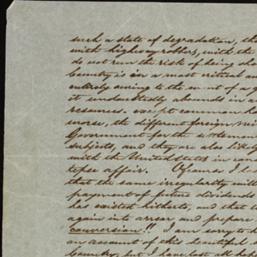 such a state of degradation, th
with highway robbers, with the
do not run the risk of being sho
Country is in a most critical an
entirely owing to the want of a g
it undoubtedly abounds in a
resources. except common ho
worse, the different foreign
Government for the settlement
subjects, and they are also like
with the United States in con
tepec affair. Of course I l
that the same irregularity will
payment of future dividends
has existed hitherto, and that
again into arrear, and prepare
conversion!! I am sorry to
an account of this beautiful
Country, but I have lost all hope